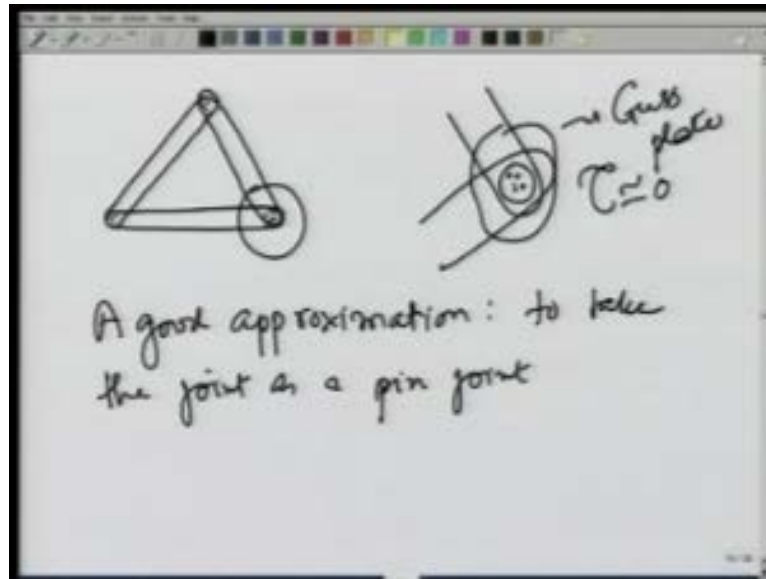 ~ Guss
plate
τ ≃ 0
A good approximation: to take
the joint as a pin joint